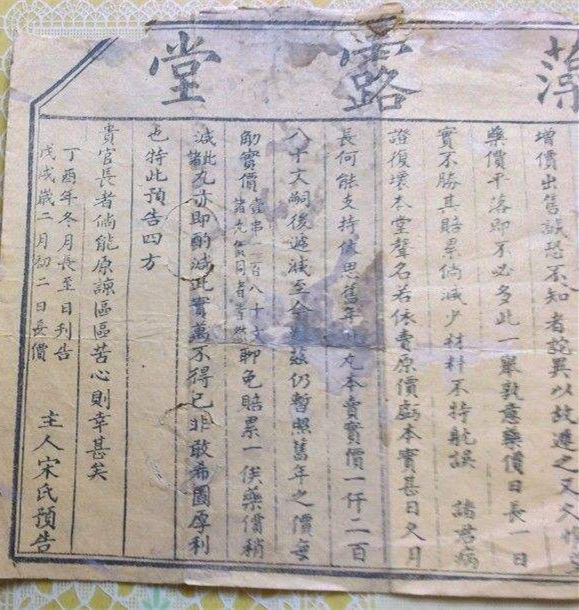 藻露堂
增價出售誠恐不知者詫異以故進之又久惟
藥價平落即不必多此一舉孰意藥價日長一日
實不勝其賠累倘減少材料不特躭誤 諸君病
證復壞本堂聲名若依原價虧本實甚日久月
長何能支持依思舊年丸本賣實價一仟二百
八十文嗣後遞減至今茲仍暫照舊年之價每
觔實價壹串一百八十文諸丸價同者聊免賠累一俟藥價稍
減此諸丸亦即酌減此實萬不得已非敢希圖厚利
也特此預告四方
貴官長者倘能原諒區區苦心則幸甚矣
丁酉年冬月長至日刊告
戊戌歲二月初二日長價
主人宋氏預告